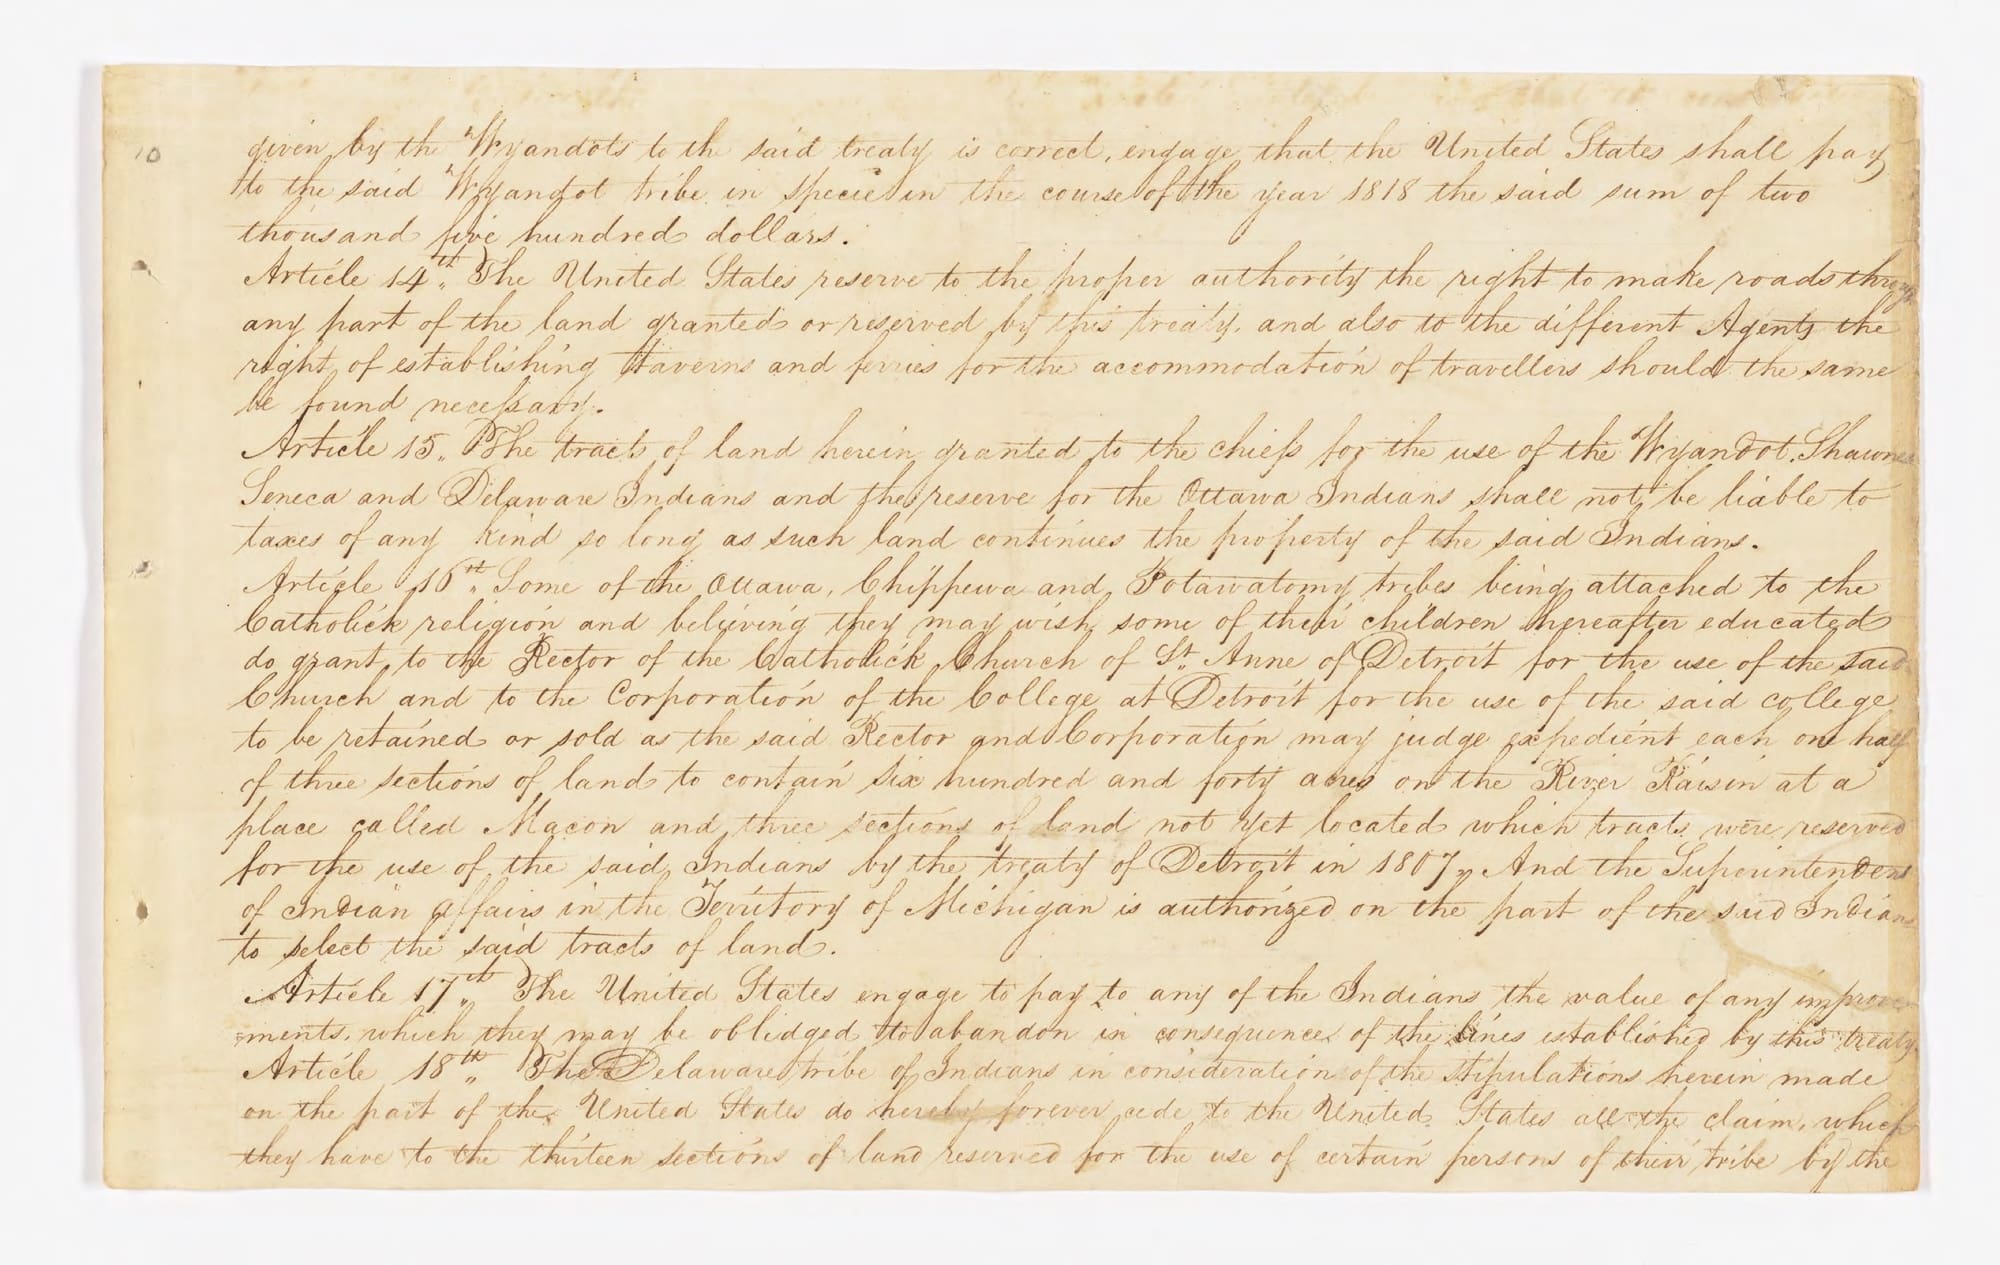 10
given by the Wyandots to the said treaty is correct, engage that the United States shall pay
to the said Wyandot tribe in specie in the course of the year 1818 the said sum of two
thousand five hundred dollars.
Article 14th. The United States reserve to the proper authority the right to make roads through
any part of the land granted or reserved by this treaty, and also to the different Agents the
right of establishing taverns and ferries for the accommodation of travellers should the same
be found necessary.
Article 15. The tracts of land herein granted to the chiefs for the use of the Wyandot, Shawnee
Seneca and Delaware Indians and the reserve for the Ottawa Indians shall not be liable to
taxes of any kind so long as such land continues the property of the said Indians.
Article 16th. Some of the Ottawa, Chippewa and Potawatomy tribes being attached to the
Catholick religion and believing they may wish some of their children hereafter educated
do grant to the Rector of the Catholick Church of St. Anne of Detroit for the use of the said
Church and to the Corporation of the College at Detroit for the use of the said college
to be retained or sold as the said Rector and Corporation may judge expedient each one half
of three sections of land to contain six hundred and forty acres on the River Raisin at a
place called Macon and three sections of land not yet located which tracts were reserved
for the use of the said Indians by the treaty of Detroit in 1807, And the Superintendent
of Indian affairs in the Territory of Michigan is authorized on the part of the said Indians
to select the said tracts of land.
Article 17th. The United States engage to pay to any of the Indians the value of any improve-
-ments, which they may be oblidged to abandon in consequence of the lines established by this treaty
Article 18th. The Delaware tribe of Indians in consideration of the stipulations herein made
on the part of the United States do hereby forever cede to the United States all the claim, which
they have to the thirteen sections of land reserved for the use of certain persons of their tribe by the